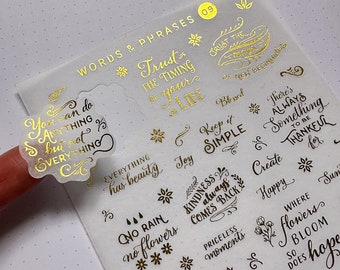 WORDS & PHRASES
09
You can do
ANYTHING
but not
EVERYTHING
Trust
THE TIMING
of your
LIFE
TRUST THE
NEW BEGINNINGS
EVERYTHING
has beauty
Joy
Keep it
SIMPLE
Bloom
There's
ALWAYS
Something
TO BE
THANKFUL
FOR
NO RAIN
no flowers
KINDNESS
always
COMES BACK
PRICELESS
moments
Create
Happy
Sun
WHERE
flowers
BLOOM
SO
DOES hope